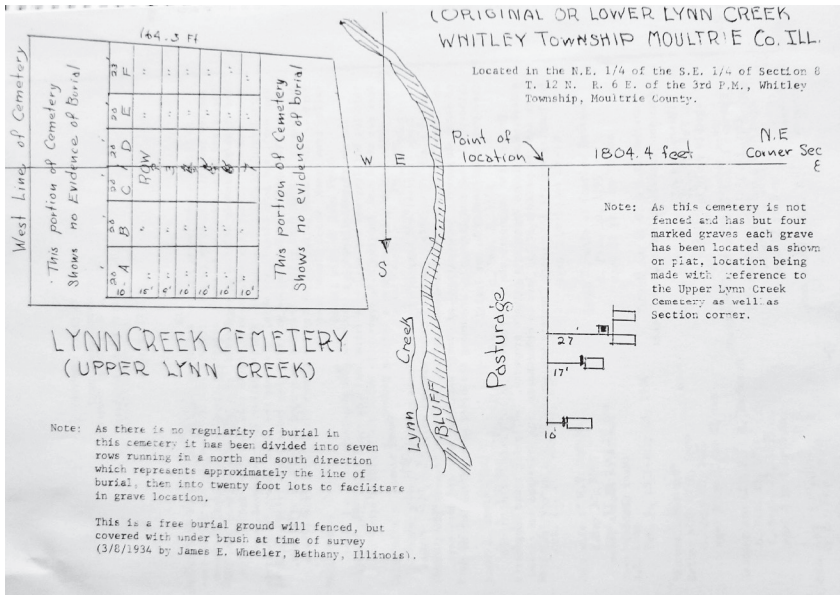 (ORIGINAL OR LOWER LYNN CREEK
WHITLEY TOWNSHIP MOULTRIE CO. ILL.
Located in the N.E. 1/4 of the S.E. 1/4 of Section 8
T. 12 N. R. 6 E. of the 3rd P.M., Whitley
Township, Moultrie County.
164.3 Ft
West Line of Cemetery
This portion of Cemetery
Shows no Evidence of Burial
20' 20' 20' 20' 20' 20'
A B C D E F
ROW
10' 15' 9' 10' 10' 10' 10'
This portion of Cemetery
Shows no evidence of burial
W E
S
Point of
location
1804.4 feet
N.E
Corner Sec
8
Note: As this cemetery is not
fenced and has but four
marked graves each grave
has been located as shown
on plat, location being
made with reference to
the Upper Lynn Creek
Cemetery as well as
Section corner.
Pasturage
27'
17'
10'
Lynn Creek
BLUFF
LYNN CREEK CEMETERY
(UPPER LYNN CREEK)
Note: As there is no regularity of burial in
this cemetery it has been divided into seven
rows running in a north and south direction
which represents approximately the line of
burial, then into twenty foot lots to facilitate
in grave location.
This is a free burial ground will fenced, but
covered with under brush at time of survey
(3/8/1934 by James E. Wheeler, Bethany, Illinois).